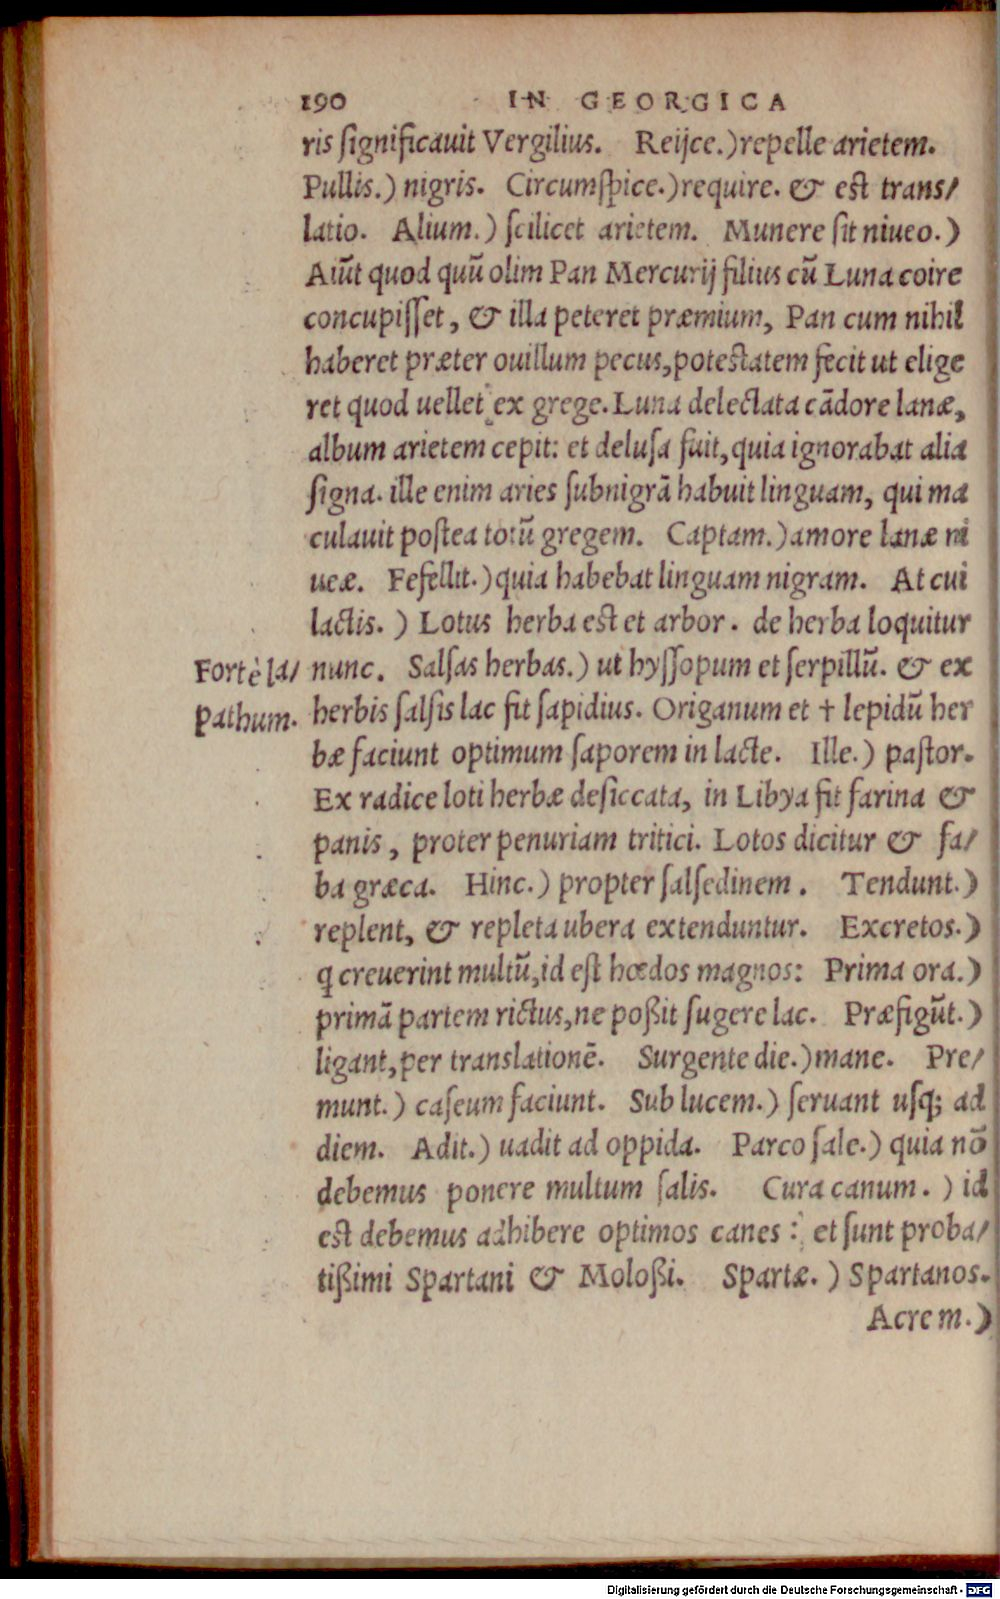 190 IN GEORGICA
ris ſignificauit Vergilius. Reijce.) repelle arietem.
Pullis.) nigris. Circumſpice.) require. & est trans/
latio. Alium.) ſcilicet arietem. Munere ſit niueo.)
Aiūt quod quū olim Pan Mercurij filius cū Luna coire
concupiſſet, & illa peteret præmium, Pan cum nihil
haberet præter ouillum pecus, potestatem fecit ut elige
ret quod uellet ex grege. Luna delectata cādore lanæ,
album arietem cepit: et deluſa fuit, quia ignorabat alia
ſigna. ille enim aries ſubnigrā habuit linguam, qui ma
culauit poſtea totū gregem. Captam.) amore lanæ ni
ueæ. Fefellit.) quia habebat linguam nigram. At cui
lactis.) Lotus herba est et arbor. de herba loquitur
nunc. Salſas herbas.) ut hyſſopum et ſerpillū. & ex
herbis ſalſis lac fit ſapidius. Origanum et † lepidū her
Fortè la/
pathum.
bæ faciunt optimum ſaporem in lacte. Ille.) paſtor.
Ex radice loti herbæ deſiccata, in Libya fit farina &
panis, proter penuriam tritici. Lotos dicitur & fa/
ba græca. Hinc.) propter ſalſedinem. Tendunt.)
replent, & repleta ubera extenduntur. Excretos.)
q creuerint multū, id eſt hœdos magnos: Prima ora.)
primā partem rictus, ne poßit ſugere lac. Præfigūt.)
ligant, per translationē. Surgente die.) mane. Pre/
munt.) caſeum faciunt. Sub lucem.) ſeruant uſq; ad
diem. Adit.) uadit ad oppida. Parco ſale.) quia nō
debemus ponere multum ſalis. Cura canum.) id
est debemus adhibere optimos canes: et ſunt proba/
tißimi Spartani & Moloßi. Spartæ.) Spartanos.
Acrem.)
Digitalisierung gefördert durch die Deutsche Forschungsgemeinschaft - DFG